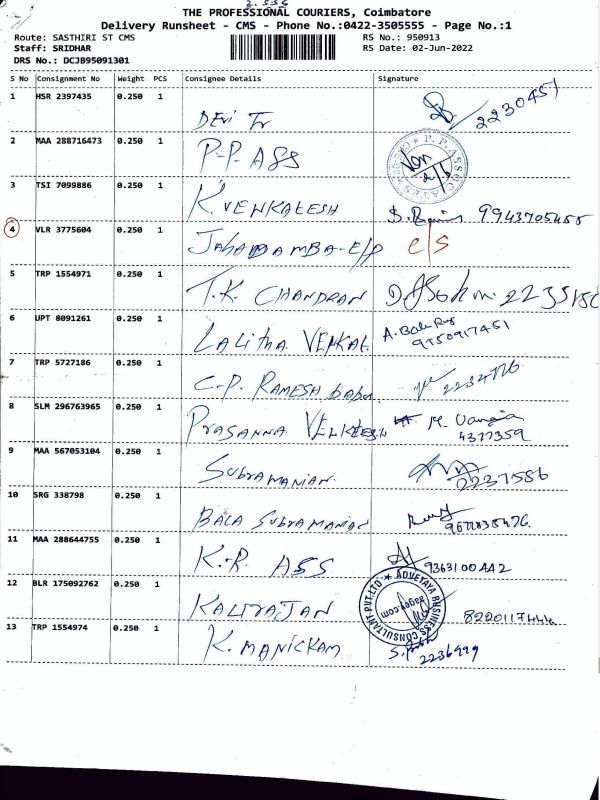 THE PROFESSIONAL COURIERS, Coimbatore
Delivery Runsheet - CMS - Phone No.:0422-3505555 - Page No.:1
Route: SASTHIRI ST CMS RS No.: 950913
Staff: SRIDHAR RS Date: 02-Jun-2022
DRS No.: DCJB95091301
S No Consignment No Weight PCS Consignee Details Signature
1 HSR 2397435 0.250 1 DEVI Tr 2230451
2 MAA 288716473 0.250 1 P-P. ASS P.P. ASSOCIATES
3 TSI 7099886 0.250 1 K. VENKATESH 9943705455
4 VLR 3775604 0.250 1 c/s
5 TRP 1554971 0.250 1 T.K. CHANDRAN
6 UPT 8091261 0.250 1 LALitha VENKAT A. 9750917451
7 TRP 5727186 0.250 1 C-P. RAMESH babu
8 SLM 296763965 0.250 1 PRASANNA VENKTESH M. 4377359
9 MAA 567053104 0.250 1 SUBRAMANIAN. 2237586
10 SRG 338798 0.250 1 BALA SUBRAMANIAN
11 MAA 288644755 0.250 1 K.R. ASS 9363100442
12 BLR 175092762 0.250 1 KALIRAJAN ADVETAYA BUSINESS CONSULTANT PVT.LTD. 8220117444
13 TRP 1554974 0.250 1 K. MANICKAM 2236999